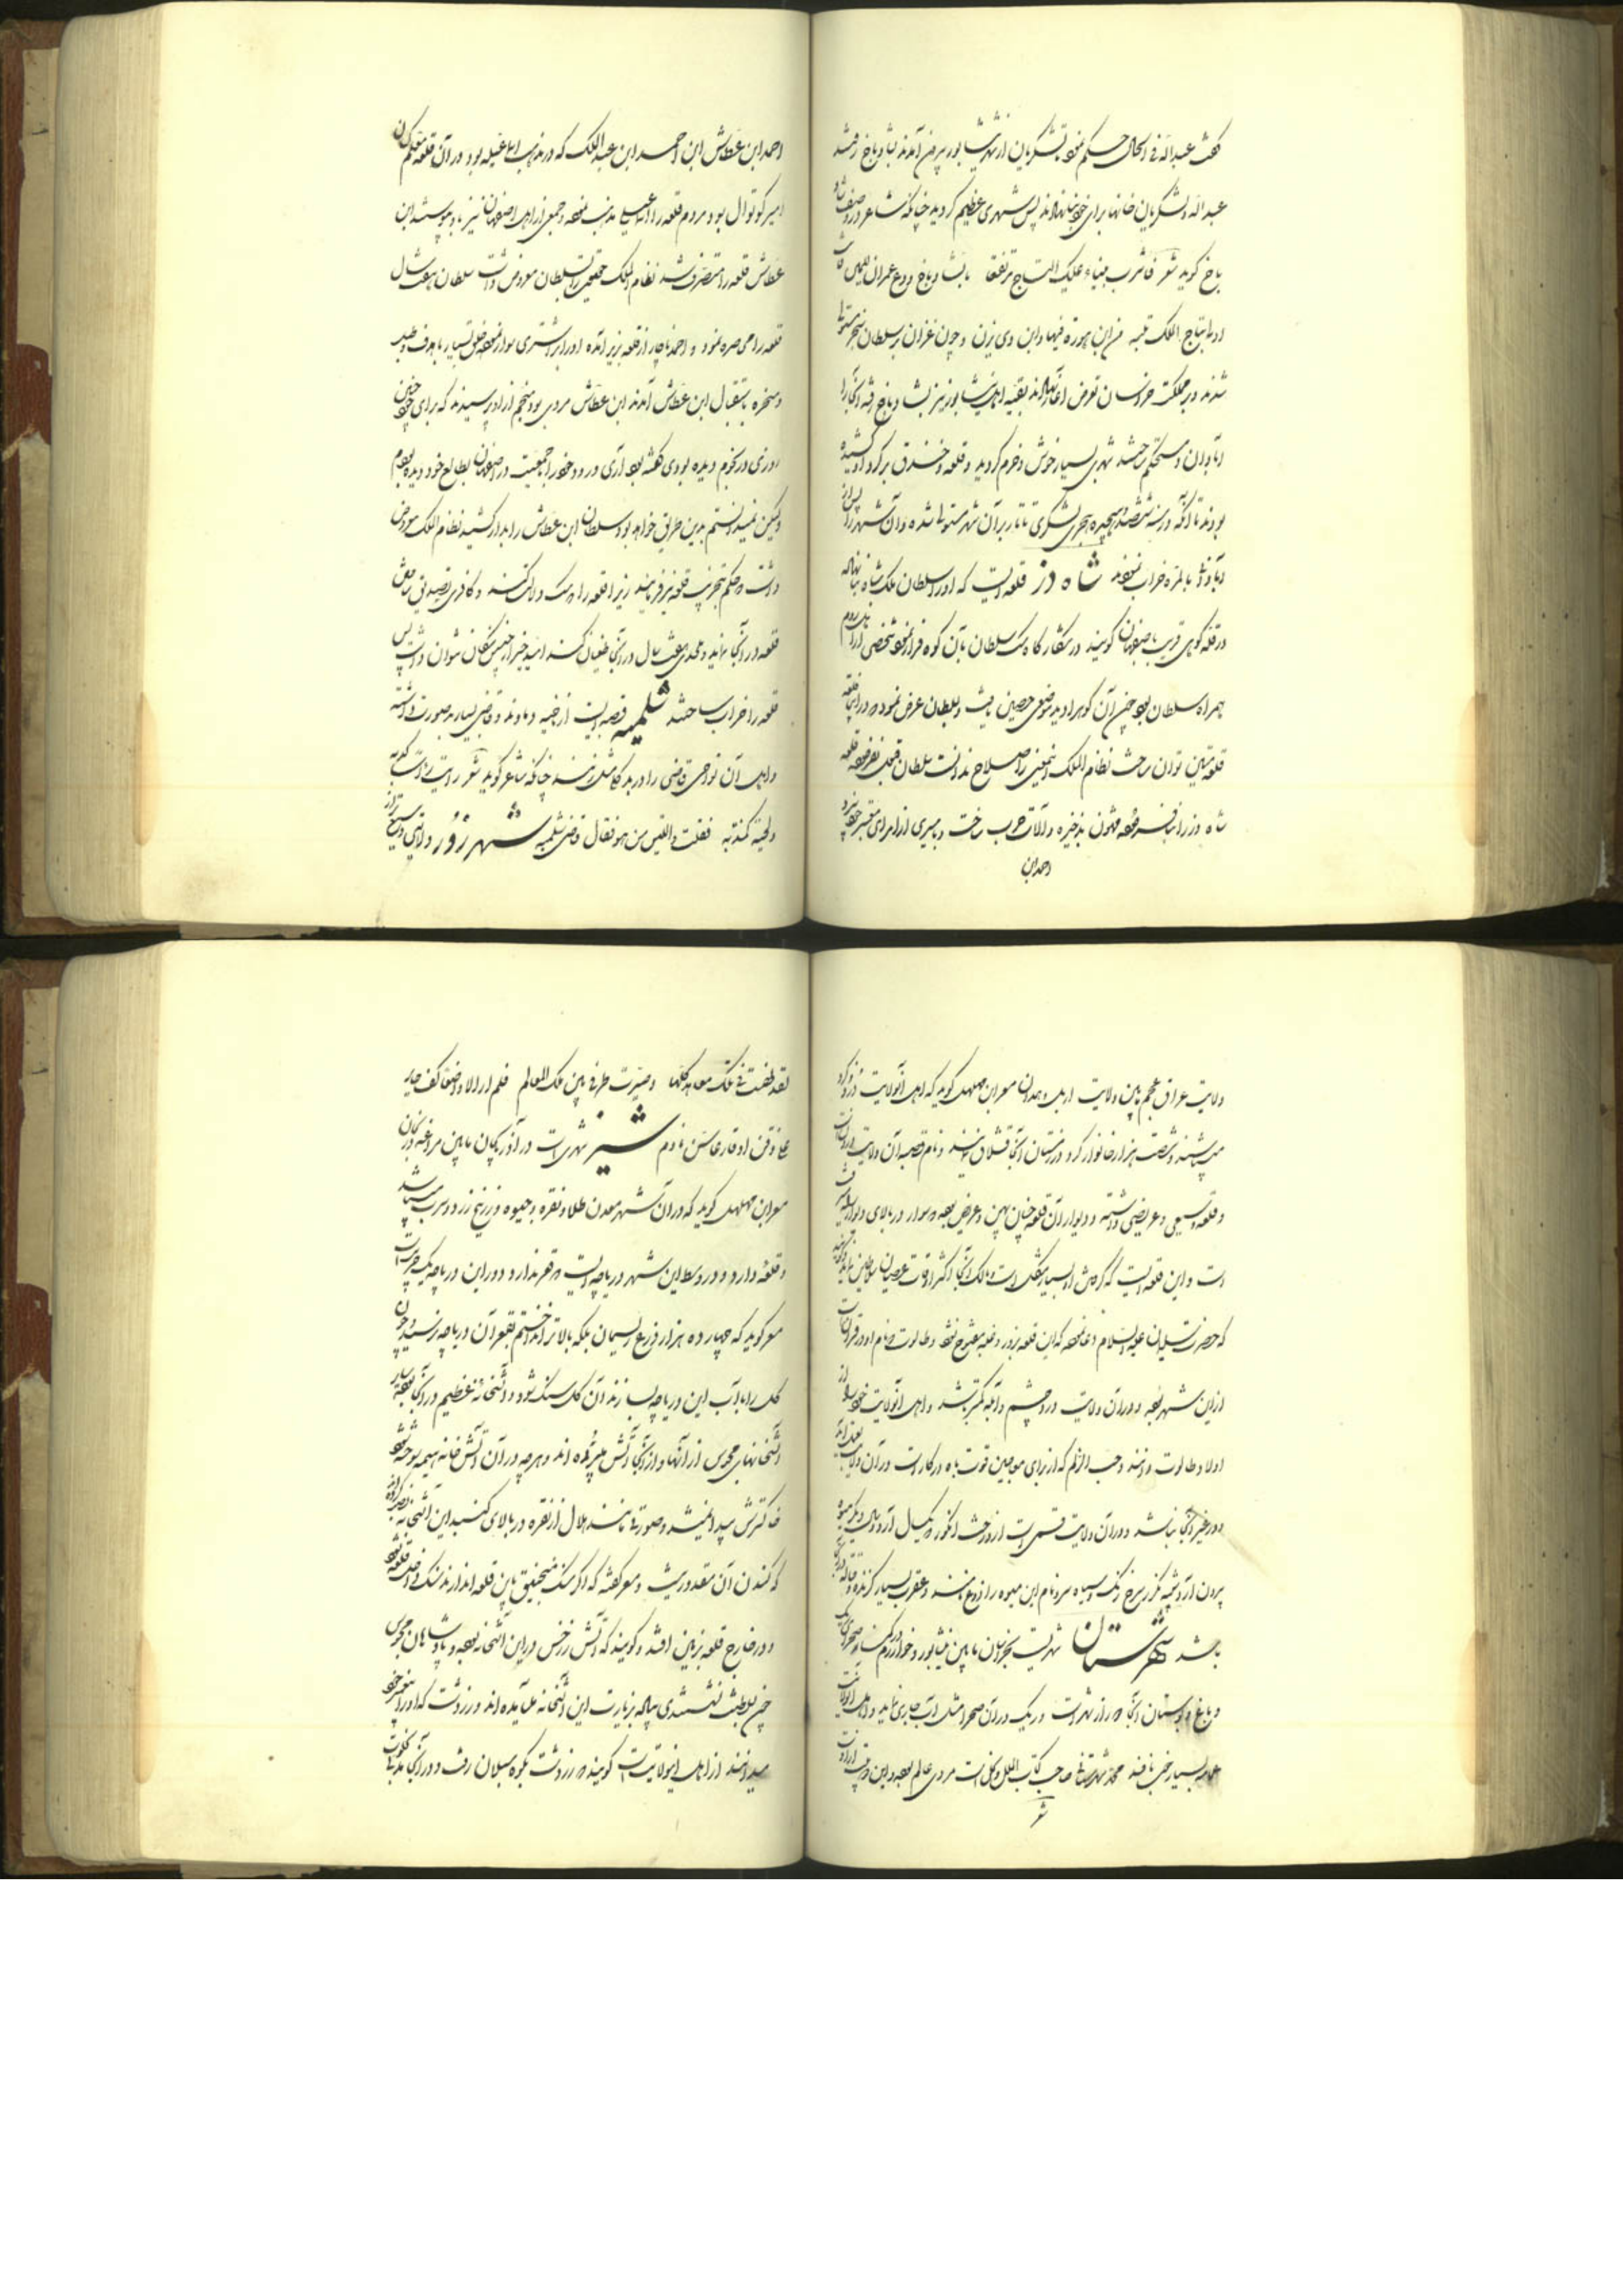 گفت عبداله فی الحال حکم نمود لشکریان از شهر نیشابور بیرون آمدند بشادیاخ رفتند
عبداله و لشکریان خانها برای خود بنا نهادند پس شهری عظیم گردید چنانکه شاعر در وصف شاد
یاخ گوید شعر فاشرب هنیاء علیک التاج مرتفقا بالشادیاخ ودع غمدان للیمن فانت
اولی بتاج الملک تلبسه من ابن هوذه فیها وابن ذی یزن و چون غزان بر سلطان سنجر مستولی
شدند و بمملکت خراسان تعرض آغاز نهادند بقیه اهل نیشابور نیز بشادیاخ رفته آنجا را
آبادان و مستحکم ساختند شهری بسیار خوش و خرم گردید و قلعه و خندق بر گرد او کشیده
بودند تا آنکه در سنه ششصد و هیجده هجری لشکر تاتار بر آن شهر مستولی شده و آن شهر را پس از
بالمره خراب نمودند شاه دز قلعه ایست که او را سلطان ملک شاه بنا نهاده
در قله کوهی قریب باصفهان گویند در شکارگاه سک سلطان بآن کوه فرار نمود شخصی از اهل روم
همراه سلطان بود چون آن کوه را دید موضعی حصین یافت و بسلطان عرض نمود که در اینجا قلعه
قلعه متین توان ساخت نظام الملک اینمعنی را صلاح ندانست سلطان قبول نفرموده قلعه
شاه دز را بنا فرموده مشحون بذخیره و آلات حرب ساخت و بامیری از امرای معتبر خود سپرد
احمد ابن
احمد ابن عطاش ابن احمد ابن عبد الملک که در مذهب اسماعیلیه بود در آن قلعه
امیر کوتوال بود مردم قلعه را اسمعیلی مذهب نموده و جمعی از اهل اصفهان نیز باو پیوسته ابن
عطاش قلعه را متصرف شد نظام الملک حقیقت را بسلطان معروض داشت سلطان هفت سال
قلعه را محاصره نمود و احمد ناچار از قلعه بزیر آمده او را بر اشتری سوار نموده خلق بسیار با دف و طبل
و سخره باستقبال ابن عطاش آمدند ابن عطاش مردی بود منجم از او پرسیدند که برای خود چنین
روزی در نجوم دیده بودی گفته بود آری ورود خود را بجمعیت در اصفهان بطالع خود دیده بودم
ولیکن نمیدانستم بدین طریق خواهد بود سلطان ابن عطاش را بدار کشید نظام الملک معروض
داشت که حکم بتخریب قلعه نیز فرمایند زیرا قلعه را که سک دلالت کند و کافری تصدیق نماید
قلعه در آنجا بنا نهند و ملحدی هفت سال در آنجا طغیان کند امید خیر از چنین مکان نتوان داشت پس
قلعه را خراب ساختند شلمبه قصبه ایست از ناحیه دماوند و قاضی بسیار بد صورت داشته
و اهل آن نواحی قاضی را در بد گلی مثل زنند چنانکه شاعر گوید شعر رایت راسا کدبه
ولحیة کمذبه فقلت ذا التیس من هو فقال قاضی شلمبه شهرزور ولایتی وسیع
ولایت عراق عجم مابین ولایت اربل و همدان مسعر ابن مهلهل گوید که اهل آنولایت دزد و کرد
میباشند و شصت هزار خانوار کرد در زمستان آنجا قشلاق میکنند و نام قصبه آن ولایت
و قلعه وسیعی و عریضی داشته و دیوار آن قلعه چنان پهن و عریض بوده که سوار در بالای دیوار
است و این قلعه ایست که گرفتن او بسیار مشکل است و مالک آنجا اکثر اوقات عصیان سلاطین نماید
که حضرت سلیمان علیه السلام دعا نموده که این قلعه بزور و غلبه مفتوح نشود و طالوت که نام او در قرآنست
از این شهر بوده و در آن ولایت درد چشم و آبله کمتر باشد و اهل آنولایت خود را از
اولاد طالوت دانند و حب الزلم که از برای معاجین قوت باه در کار است در آن ولایت بعمل آید
و در غیر آنجا نباشد و در آن ولایت قسمی است از درخت انگور که یکسال
بیرون آرد شبیه بگزر سرخ رنگ و سیاه سر و نام این میوه را از دوغ نامند و عقرب بسیار گزنده و قتاله
باشد شهرستان شهریست بخراسان مابین نیشابور و خوارزم در کنار صحرای
و باغ و بوستان آنجا دور از شهر است و ریک در آن صحرا مثل آب جاری نماید و اهل آنولایت
عمامه بسیار خوب بافند محمد شهرستانی صاحب کتاب الملل و النحل است مردی عالم بوده و این شعر از اوست
شعر
لقد طفت فی تلک معاهد کلها وصیرت طرفی بین تلک المعالم فلم ار الا واضعا کف حایر
علی ذقن او قارعا سن نادم شیز شهری است در آذربایجان مابین مراغه و زنجان
مسعر ابن مهلهل گوید که در آن شهر معدن طلا و نقره و جیوه و زرنیخ زرد و سرب میباشد
و قلعه دارد و در وسط این شهر دریاچه ایست که قعر ندارد و دور این دریاچه یک جریب است
مسعر گوید که چهارده هزار ذرع ریسمان بلکه بالاتر انداختم بقعر آن دریاچه نرسید و چون
گل را با آب این دریاچه بسازند آن گل سنگ شود و آتشخانه عظیم در آنجا بوده سایر
آتشخانهای مجوس از آنها و از آنجا آتش میبرده اند و هر چه در آن آتش خانه هیمه سوخته شود
خاکسترش پیدا نمیشد و صورتی مانند هلال از نقره در بالای گنبد این آتشخانه نصب کرده اند
که کندن آن مقدور نیست و مسعر گفته که اگر سنگ منجنیق باین قلعه اندازند سنگ داخل قلعه نشود
و در خارج قلعه بزمین افتد و گویند که آتش زرتشت در این آتشخانه بوده و پادشاهان مجوس
چون بسلطنت نشستندی پیاده بزیارت این آتشخانه میآمده اند و زردشت که او را پیغمبر خود
میدانند از اهل اینولایت است گویند که زردشت بکوه سبلان رفت و در آنجا مدتی خلوت